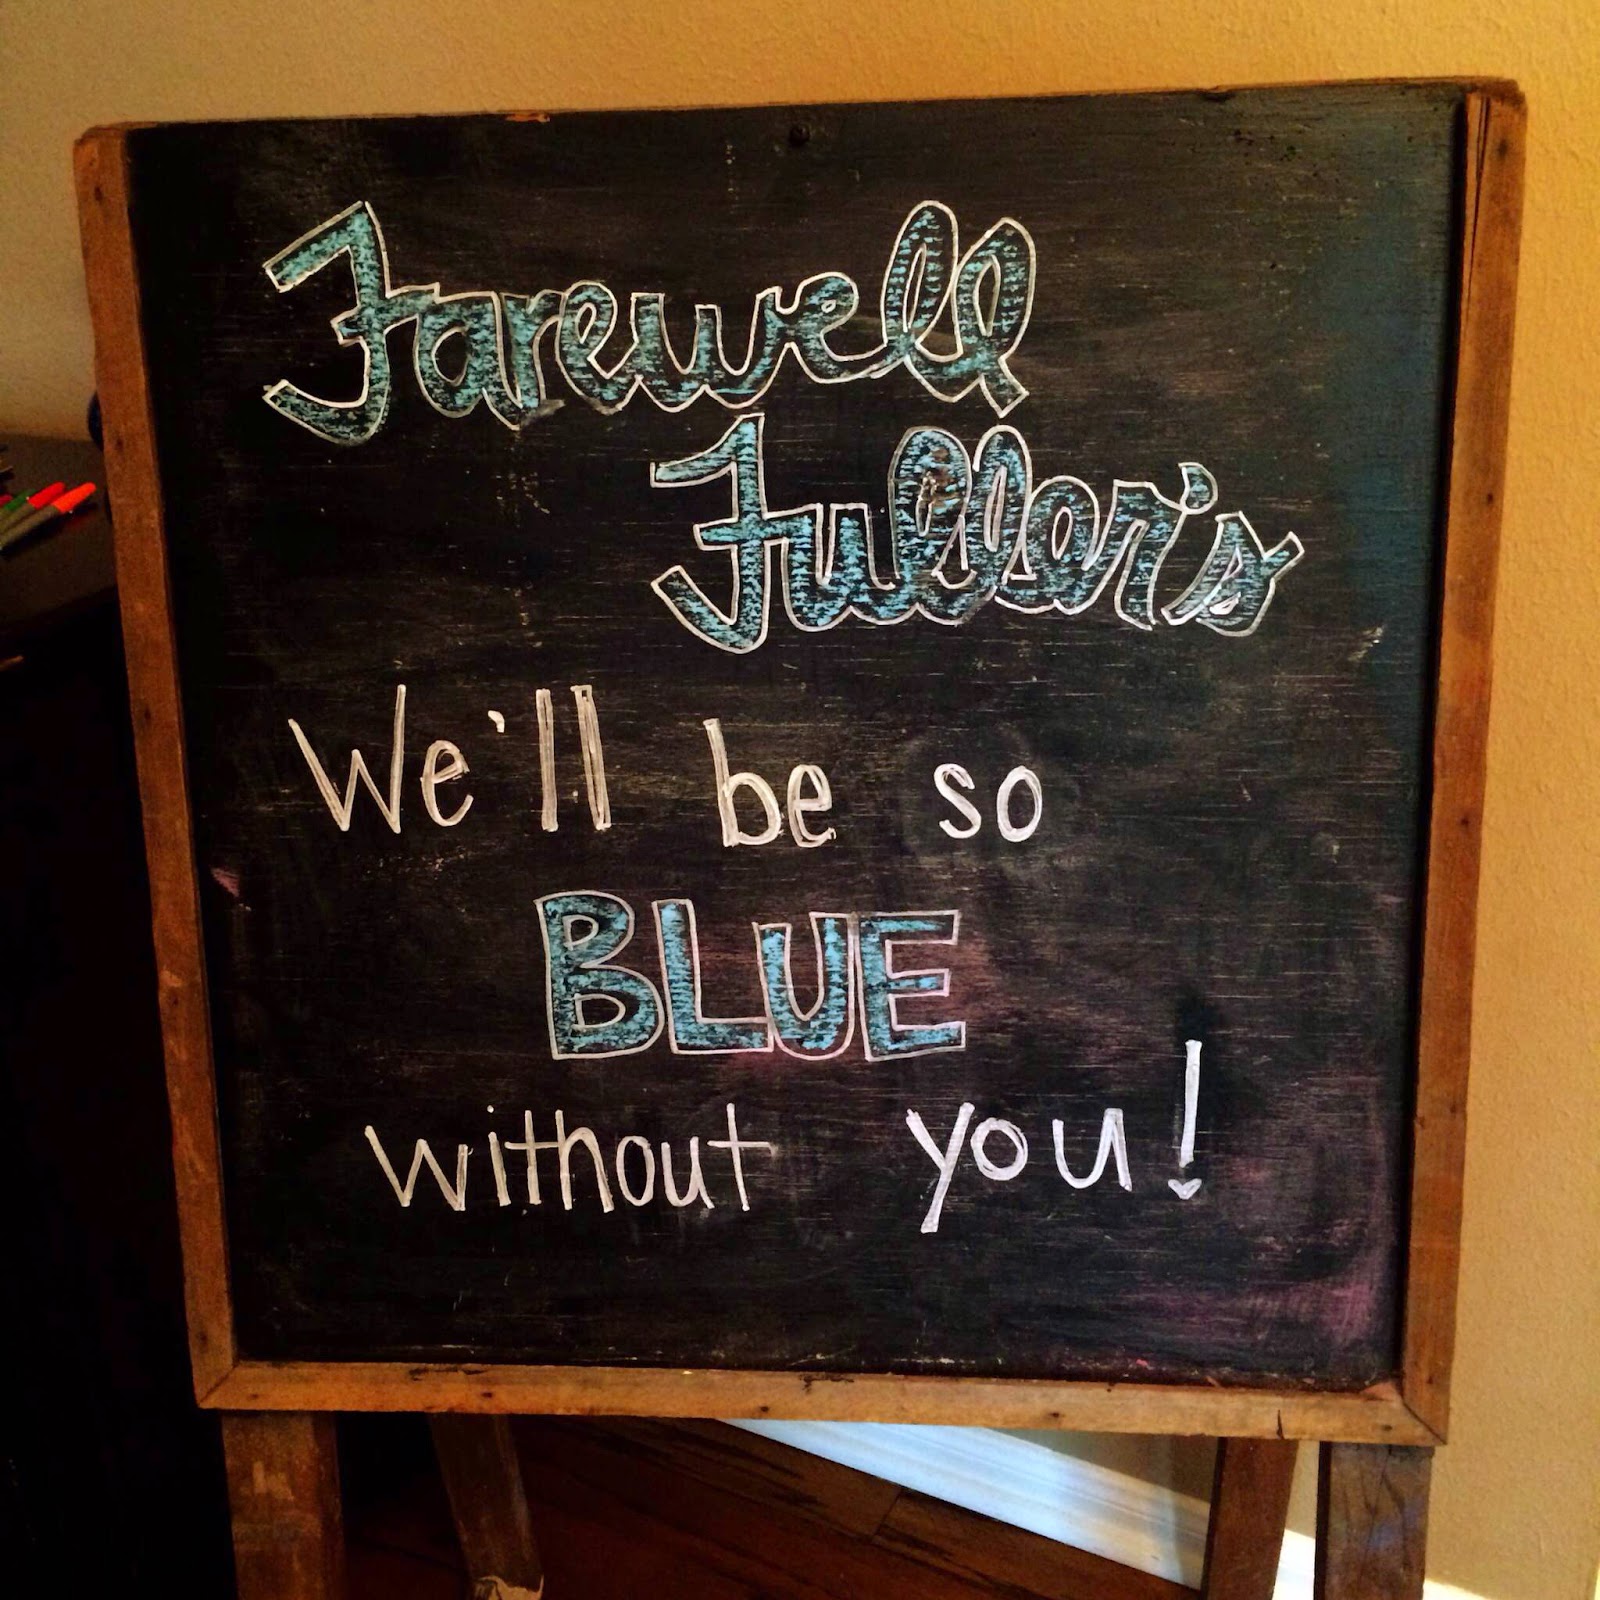 Farewell
Fuller's
We'll be so
BLUE
without you!